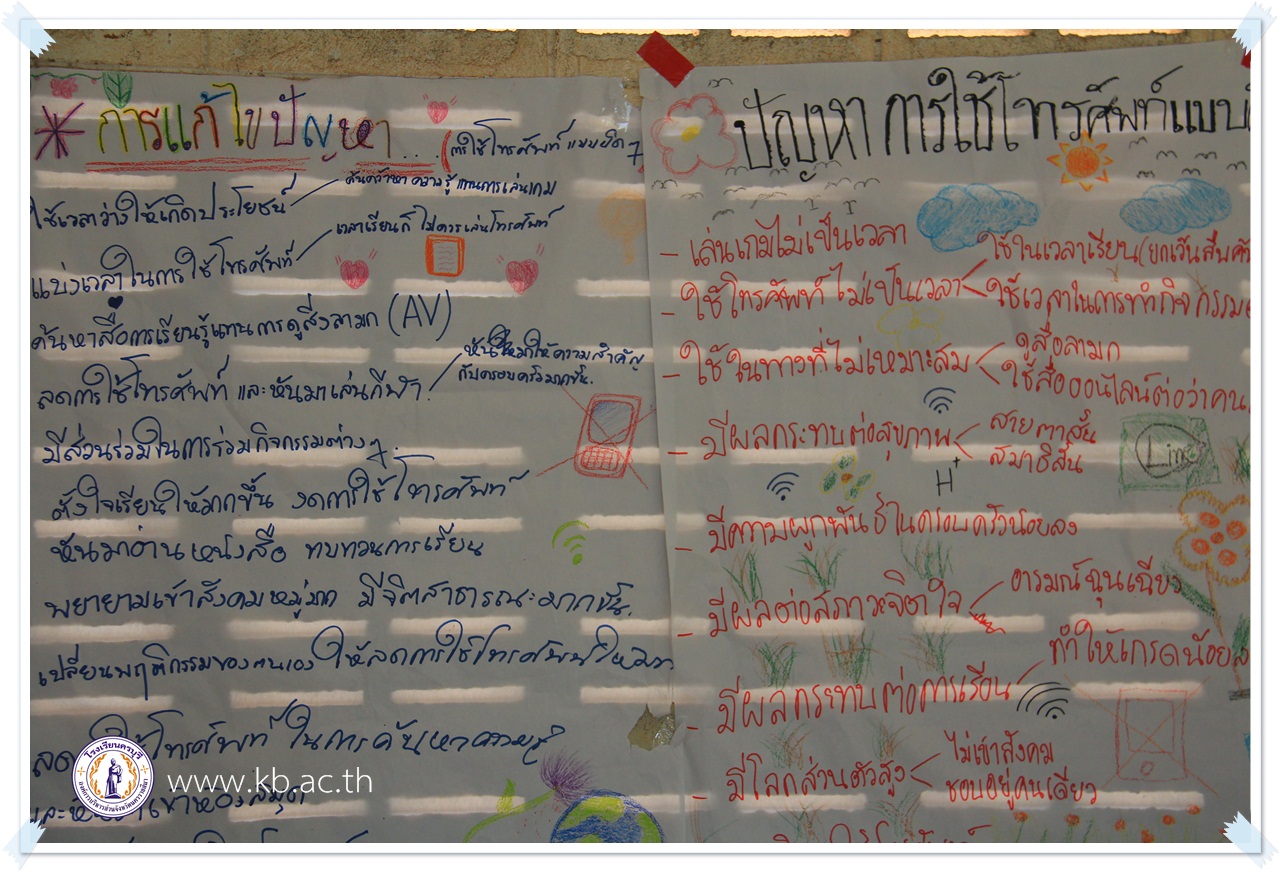 การแก้ไขปัญหา...
(การใช้โทรศัพท์แบบผิดๆ
ใช้เวลาว่างให้เกิดประโยชน์
ค้นคว้าหาความรู้แทนการเล่นเกม
แบ่งเวลาในการใช้โทรศัพท์
เวลาเรียนก็ไม่ควรเล่นโทรศัพท์
ค้นหาสื่อการเรียนรู้แทนการดูสิ่งลามก (AV)
ลดการใช้โทรศัพท์ และหันมาเล่นกีฬา.
หันมาให้ความสำคัญ
กับครอบครัวมากขึ้น.
มีส่วนร่วมในการร่วมกิจกรรมต่างๆ.
ตั้งใจเรียนให้มากขึ้น งดการใช้โทรศัพท์
หันมาอ่านหนังสือ ทบทวนการเรียน
พยายามเข้าสังคมหมู่มาก มีจิตสาธารณะมากขึ้น.
เปลี่ยนพฤติกรรมของตนเอง ให้ลดการใช้โทรศัพท์ให้มาก
ลด ใช้โทรศัพท์ ในการค้นหาความรู้
เข้าห้องสมุด
ปัญหา การใช้โทรศัพท์แบบ
- เล่นเกมไม่เป็นเวลา
- ใช้โทรศัพท์ไม่เป็นเวลา
ใช้ในเวลาเรียน(ยกเว้นสืบค้
ใช้เวลาในการทำกิจกรรม
- ใช้ในทางที่ไม่เหมาะสม
ดูสื่อลามก
ใช้สื่อออนไลน์ต่อว่าคน
- มีผลกระทบต่อสุขภาพ
สายตาสั้น
สมาธิสั้น
Line
H+
- มีความผูกพันธ์ในครอบครัวน้อยลง
- มีผลต่อสภาวะจิตใจ
อารมณ์ฉุนเฉียว
- มีผลกระทบต่อการเรียน
ทำให้เกรดน้อยล
- มีโลกส่วนตัวสูง
ไม่เข้าสังคม
ชอบอยู่คนเดียว
โรงเรียนครบุรี
องค์การบริหารส่วนจังหวัดนครราชสีมา
www.kb.ac.th